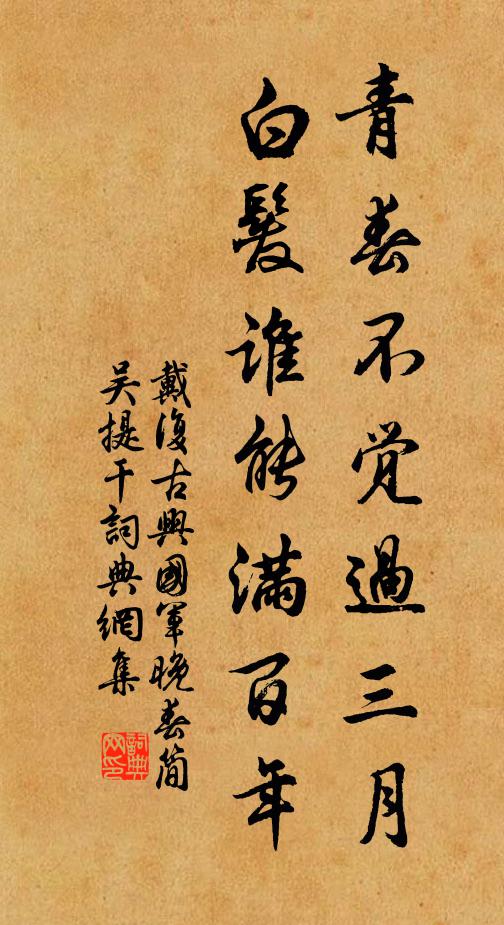 青春不覺過三月
白髮誰能滿百年
戴復古興國軍晚春簡
吳提干詞典網集
詞典
网印